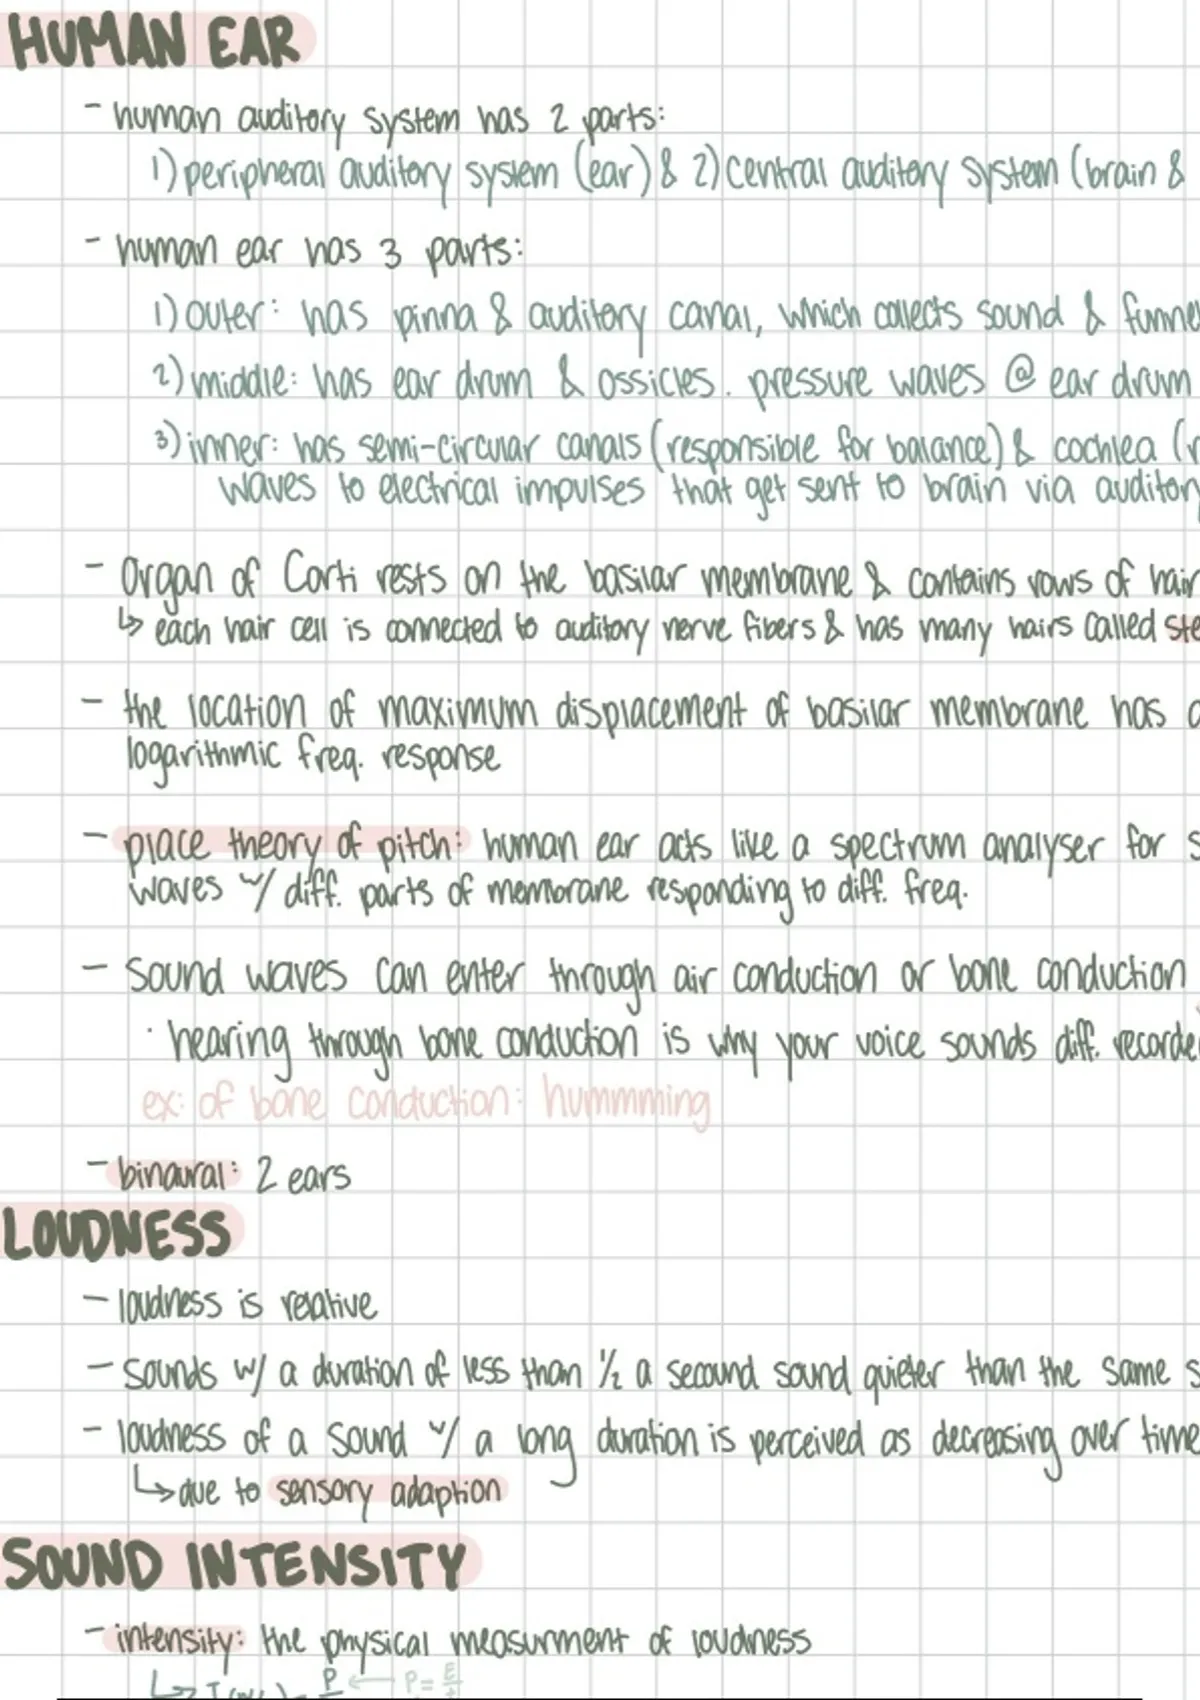 HUMAN EAR
- human auditory system has 2 parts:
1) peripheral auditory system (ear) & 2) central auditory system (brain &
- human ear has 3 parts:
1) outer: has pinna & auditory canal, which collects sound & funnel
2) middle: has ear drum & ossicles. pressure waves @ ear drum
3) inner: has semi-circular canals (responsible for balance) & cochlea (
waves to electrical impulses that get sent to brain via auditory
- Organ of Corti rests on the basilar membrane & contains rows of hair
↳ each hair cell is connected to auditory nerve fibers & has many hairs called ste
- the location of maximum displacement of basilar membrane has a
logarithmic freq. response
- place theory of pitch: human ear acts like a spectrum analyser for s
waves w/ diff. parts of membrane responding to diff. freq.
- Sound waves can enter through air conduction or bone conduction
· hearing through bone conduction is why your voice sounds diff. recorde
ex: of bone conduction: hummming
- binaural: 2 ears
LOUDNESS
- loudness is relative
- sounds w/ a duration of less than 1/2 a second sound quieter than the same s
- loudness of a sound w/ a long duration is perceived as decreasing over time
↳ due to sensory adaption
SOUND INTENSITY
- intensity: the physical measurment of loudness
P ← P = E